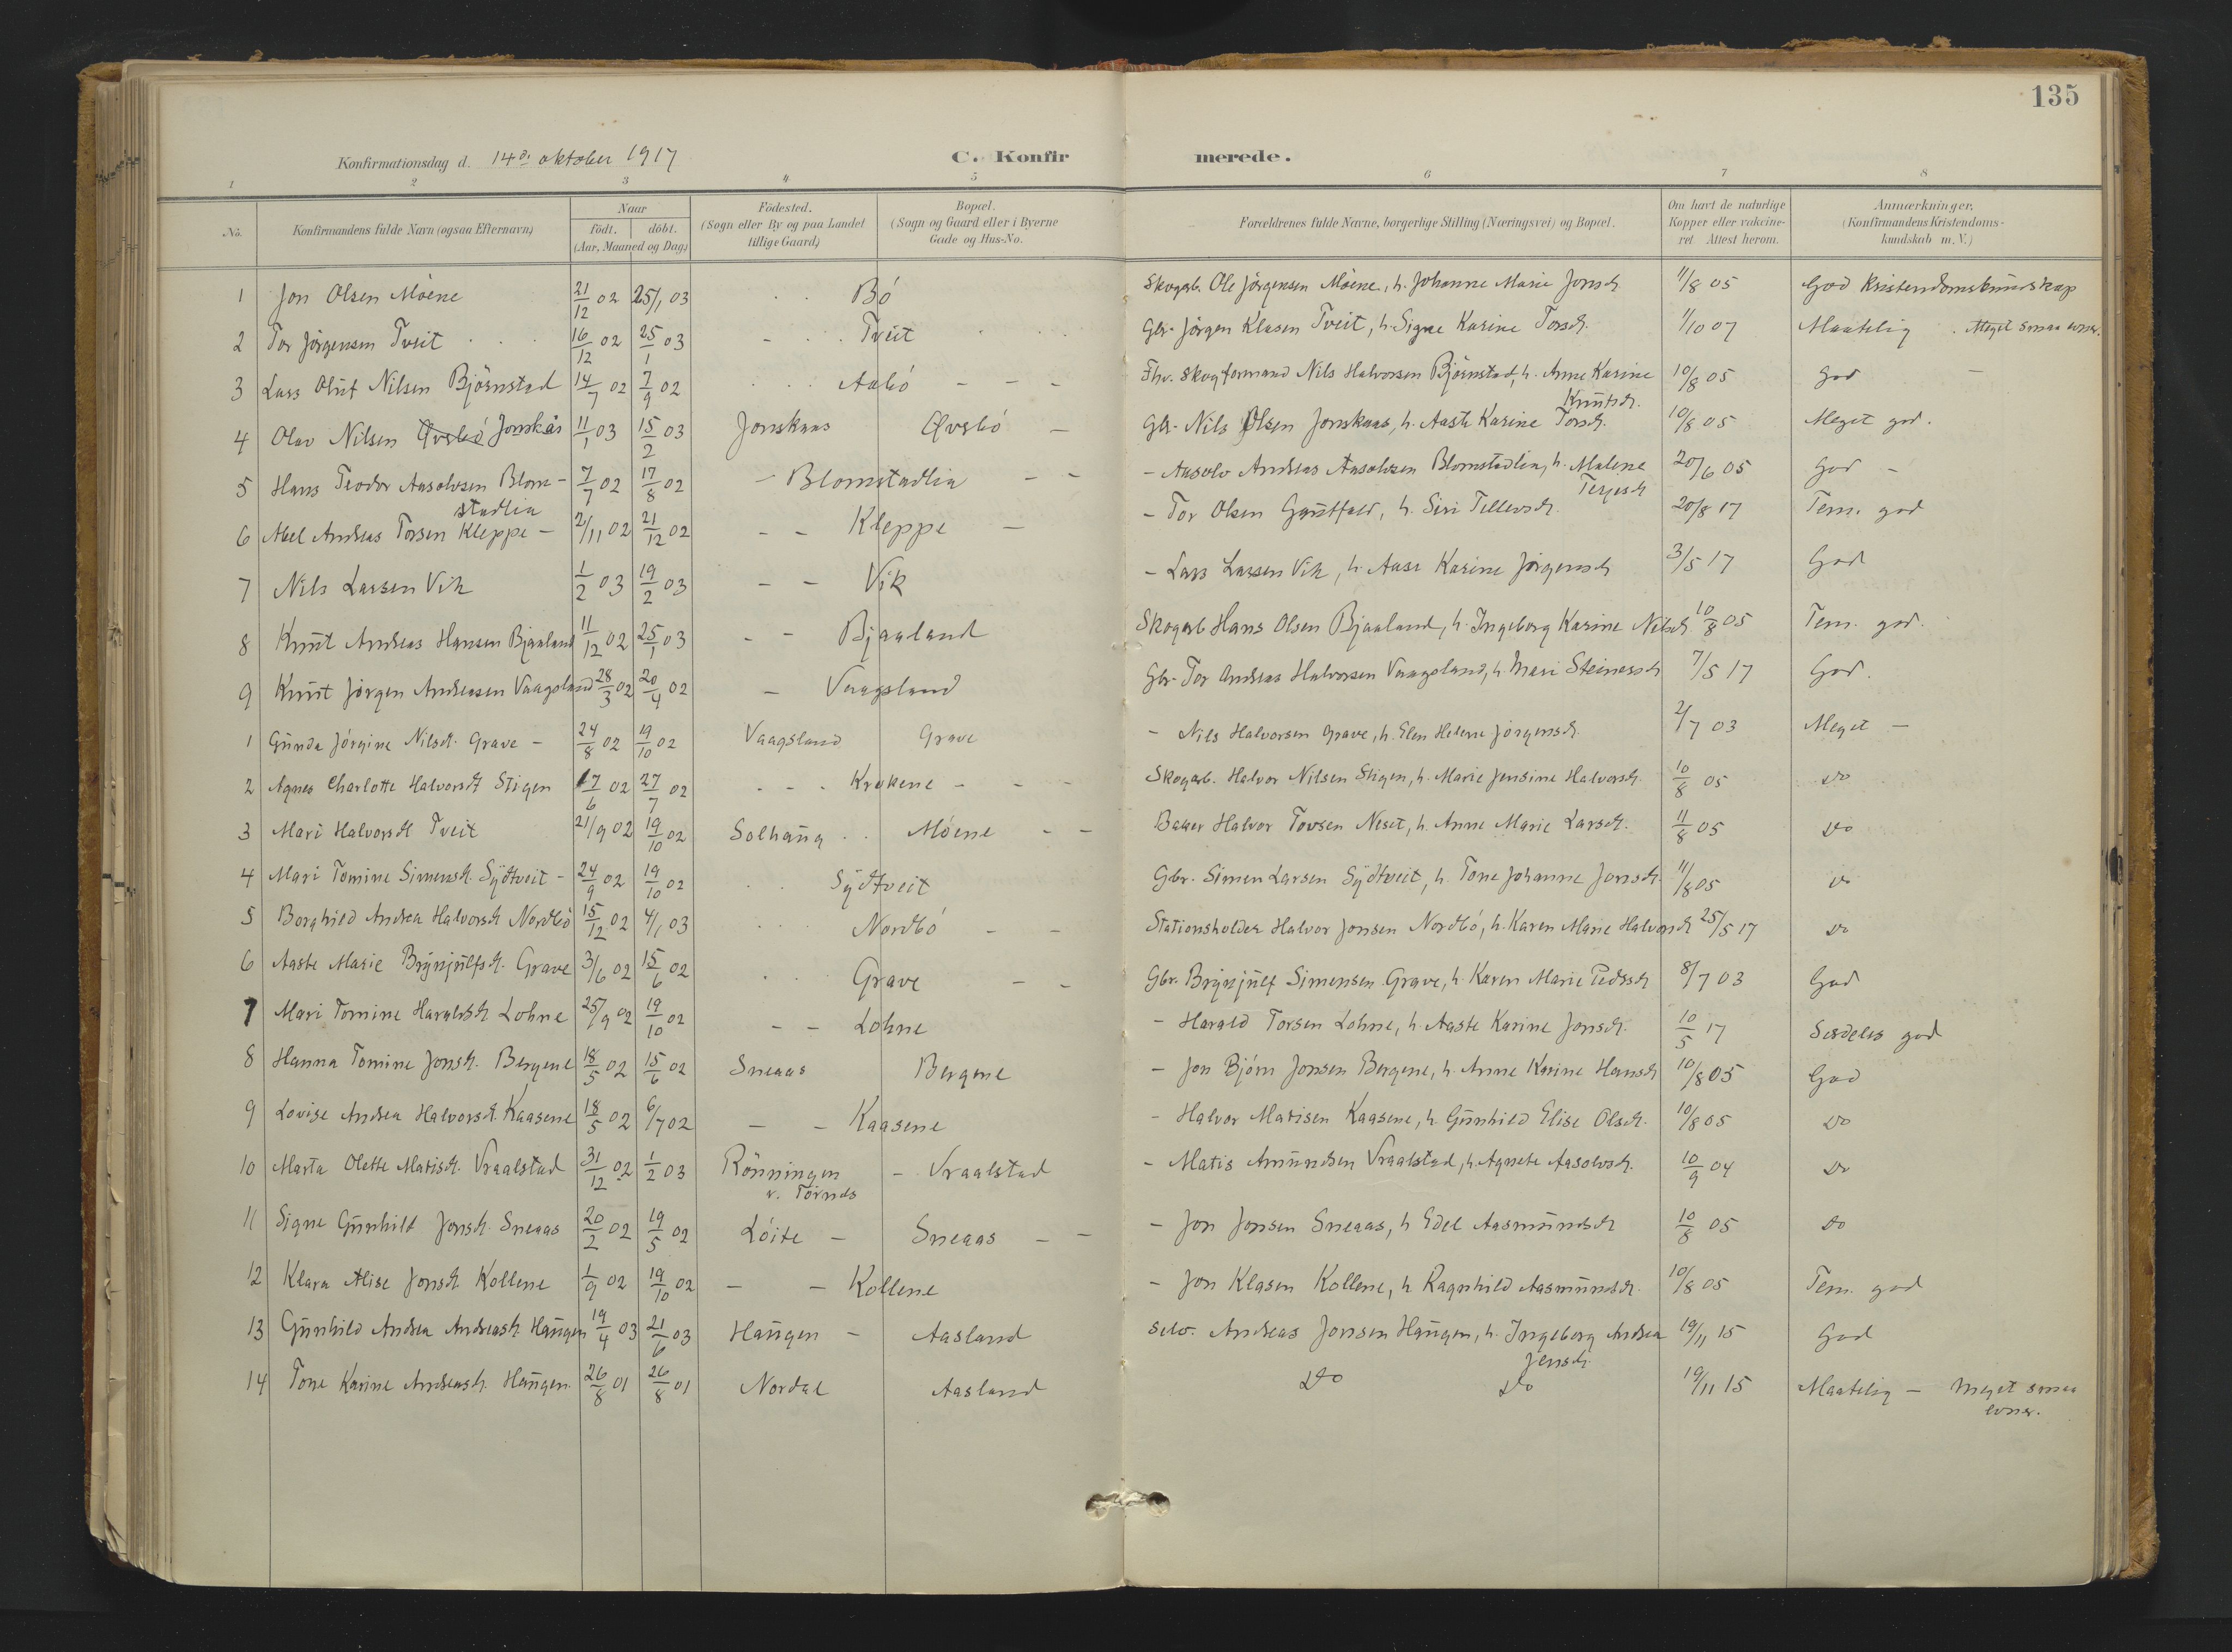 135
Konfirmationsdag d. 14de oktober 1917 C. Konfirmerede.
1 2 3 4 5 6 7 8
No. Konfirmandens fulde Navn (ogsaa Efternavn) Naar födt. döbt. (Aar, Maaned og Dag.) Födested. (Sogn eller By og paa Landet tillige Gaard) Bopæl. (Sogn og Gaard eller i Byerne Gade og Hus-No. Forældrenes fulde Navne, borgerlige Stilling (Næringsvei) og Bopæl. Om havt de naturlige Kopper eller vakcineret Attest herom. Anmærkninger. (Konfirmandens Kristendomskundskab m. V.)
1 Jon Olsen Móene 21/12 02 25/1 03 Bó Skogarb. Ole Jörgensen Móene, h. Johanne Marie Jonsd. 11/8 05 God Kristendomskundskap
2 Tor Jörgensen Tveit 16/12 02 25/1 03 - Tveit Gbr. Jörgen Klasen Tveit, h. Signe Karine Torsd. 1/10 07 Maatelig . Meget smaa evner.
3 Lars Oluf Nilsen Björnstad 14/7 02 7/9 02 Aabó - - - Fhv. Skogformand Nils Halvorsen Björnstad, h. Anne Karine Knutsd. 10/8 05 God -
4 Olav Nilsen Øvrbó Jonskås 11/1 03 15/2 03 Jonskaas Øvrbó - Gbr. Nils Olsen Jonskaas, h. Aaste Karine Torsd. 10/8 05 Meget god.
5 Hans Teodor Aasolvsen Blomstadlia 7/7 02 17/8 02 - Blomstadlia - - - Aasolv Andreas Aasolvsen Blomstadlia, h. Malene Terjesd 20/6 05 God -
6 Abel Andreas Torsen Kleppe - 2/11 02 21/12 02 - - Kleppe - - Tor Olsen Gautfald, h. Siri Tellevsd. 20/8 17 Tem. god
7 Nils Larsen Vik 1/2 03 19/2 03 - - Vik - Lars Larsen Vik, h. Aase Karine Jörgensd 3/5 17 God
8 Knut Andreas Hansen Bjaaland 11/12 02 25/1 03 - - Bjaaland Skogarb Hans Olsen Bjaaland, h. Ingeborg Karine Nilsd. 10/8 05 Tem. god.
9 Knut Jörgen Andreasen Vaagsland 28/3 02 20/4 02 - Vaagsland Gbr. Tor Andreas Halvorsen Vaagsland, h Mari Steinarsd 7/5 17 God.
1 Gunda Jörgine Nilsd. Grave - 24/8 02 19/10 02 Vaagsland Grave - Nils Halvorsen Grave, h. Elen Helene Jörgensd. 2/7 03 Meget -
2 Agnes Charlotte Halvorsd Stigen 17/6 02 27/7 02 - - - Krokene - - - Skogarb. Halvor Nilsen Stigen, h. Marie Jensine Halvorsd. 10/8 05 do
3 Mari Halvorsd Tveit 21/9 02 19/10 02 Solhaug Móene - - Baker Halvor Tovsen Neset, h. Anne Marie Larsd. 11/8 05 do
4 Mari Tomine Simensd. Sydtveit - 24/9 02 19/10 02 Sydtveit Gbr. Simen Larsen Sydtveit, h. Tone Johanne Jonsd. 11/8 05 do
5 Borghild Andrea Halvorsd Nordbó 15/12 02 4/1 03 Nordbó - - Stationsholder Halvor Jonsen Nordbó, h. Karen Marie Halvorsd 25/5 17 do
6 Aaste Marie Brynjulfsd. Grave 3/6 02 15/6 02 Grave - - Gbr. Brynjulf Simensen Grave, h. Karen Marie Pedersd 8/7 03 God
7 Mari Tomine Haraldsd Lohne 25/9 02 19/10 02 - - Lohne - Harald Torsen Lohne, h. Aaste Karine Jonsd. 10/5 17 Serdeles god
8 Hanna Tomine Jonsd. Bergene 18/5 02 15/6 02 Sneaas Bergene - Jon Bjórn Jonsen Bergene, h. Anne Karine Hansd 10/8 05 God
9 Lovise Andrea Halvorsd. Kaasene 18/5 02 6/7 02 - - Kaasene - Halvor Matisen Kaasene, h. Gunhild Elise Olsd. 10/8 05 do
10 Marta Olette Matisd. Vraalstad 31/12 02 1/2 03 Rönningen v. Törnes - Vraalstad - Matis Amundsen Vraalstad, h. Agnete Aasolvsd. 10/9 04 do
11 Signe Gunhild Jonsd. Sneaas 20/2 02 19/5 02 Lóite - Sneaas - - - Jon Jonsen Sneaas, h Edel Aasmundsd 10/8 05 do
12 Klara Alise Jonsd Kollene 1/9 02 19/10 02 - - Kollene - Jon Klasen Kollene, h Ragnhild Aasmundsd. 10/8 05 Tem. god
13 Gunhild Andrea Andreasd. Haugen 19/4 03 21/6 03 Haugen - Aasland Selv. Andreas Jonsen Haugen, h. Ingeborg Andrea Jensd. 19/11 15 God
14 Tone Karine Andreasd. Haugen 26/8 01 26/8 01 Nordal Aasland do do 19/11 15 Maatelig - Meget smaa evner.